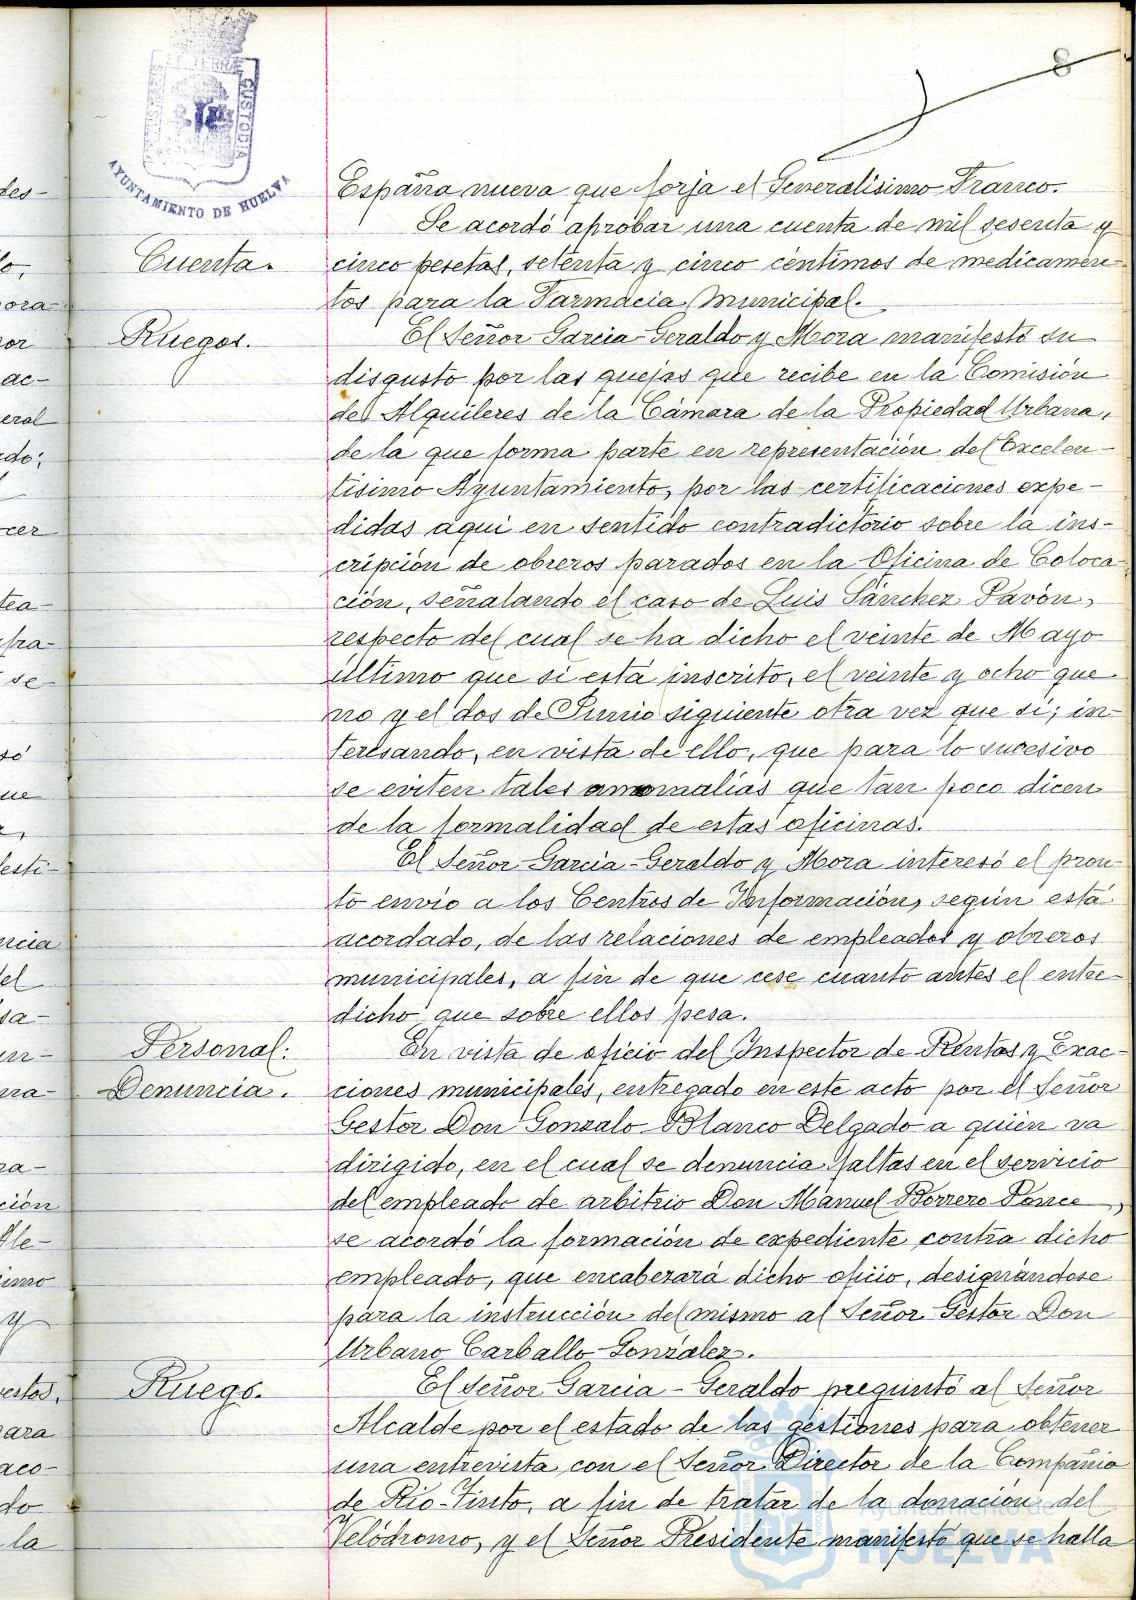 8
PORTUS MARIS ET TERRAE CUSTODIA
AYUNTAMIENTO DE HUELVA
España nueva que forja el Generalisimo Franco.
Se acordó aprobar una cuenta de mil sesenta y
Cuenta. cinco pesetas, setenta y cinco céntimos de medicamen-
tos para la Farmacia Municipal.
Ruegos. El Señor Garcia-Geraldo y Mora manifestó su
disgusto por las quejas que recibe en la Comisión
de Alquileres de la Cámara de la Propiedad Urbana,
de la que forma parte en representación del Excelen-
tisimo Ayuntamiento, por las certificaciones expe-
didas aqui en sentido contradictorio sobre la ins-
cripción de obreros parados en la Oficina de Coloca-
ción, señalando el caso de Luis Sánchez Pavón,
respecto del cual se ha dicho el veinte de Mayo
último que si está inscrito, el veinte y ocho que
no y el dos de Junio siguiente otra vez que si; in-
teresando, en vista de ello, que para lo sucesivo
se eviten tales anomalías que tan poco dicen
de la formalidad de estas oficinas.
El Señor Garcia-Geraldo y Mora interesó el pron-
to envio a los Centros de Información, según está
acordado, de las relaciones de empleados y obreros
municipales, a fin de que cese cuanto antes el entre-
dicho que sobre ellos pesa.
Personal: En vista de oficio del Inspector de Rentas y Exac-
Denuncia. ciones municipales, entregado en este acto por el Señor
Gestor Don Gonzalo Blanco Delgado a quien va
dirigido, en el cual se denuncia faltas en el servicio
del empleado de arbitrio Don Manuel Borrero Ponce,
se acordó la formación de expediente contra dicho
empleado, que encabezará dicho oficio, designándose
para la instrucción del mismo al Señor Gestor Don
Urbano Carballo González.
Ruego. El Señor Garcia-Geraldo preguntó al Señor
Alcalde por el estado de las gestiones para obtener
una entrevista con el Señor Director de la Compañia
de Rio-Tinto, a fin de tratar de la donación del
Velódromo, y el Señor Presidente manifestó que se halla
Ayuntamiento de
HUELVA